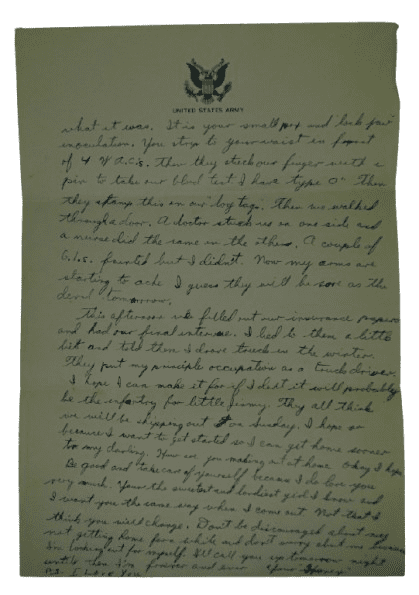 UNITED STATES ARMY
what it was. It is your small pox and lock jaw
inoculation. You strip to your waist in front
of 4 W.A.C.'s. Then they stick our finger with a
pin to take our blood test I have type O. Then
they stamp this on our dog tags. Then we walked
through a door. A doctor stuck us on one side and
a nurse did the same on the other. A couple of
G.I.s. fainted but I didn't. Now my arms are
starting to ache I guess they will be sore as the
devil tomorrow.
This afternoon we filled out our insurance papers
and had our final interview. I lied to them a little
bit and told them I drove truck in the winter.
They put my principle occupation as a truck driver.
I hope I can make it for if I dont it will probably
be the infantry for little jimmy. They all think
we will be shipping out on Sunday. I hope so
because I want to get started so I can get home sooner
to my darling. How are you making out at home Okay I hope
Be good and take care of yourself because I do love you
very much. Your the sweetest and loveliest girl I know and
I want you the same way when I come out. Not that I
think you will change. Don't be discouraged about me
not getting home for a while and don't worry about me because
I'm looking out for myself. I'll call you up tomorrow night
until then I'm forever and ever
P.S. I Love You